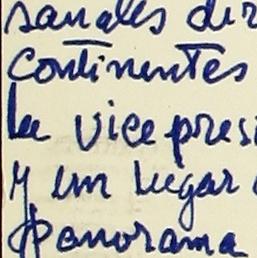 sanales dir
continentes
la vice presi
y un lugar
panorama